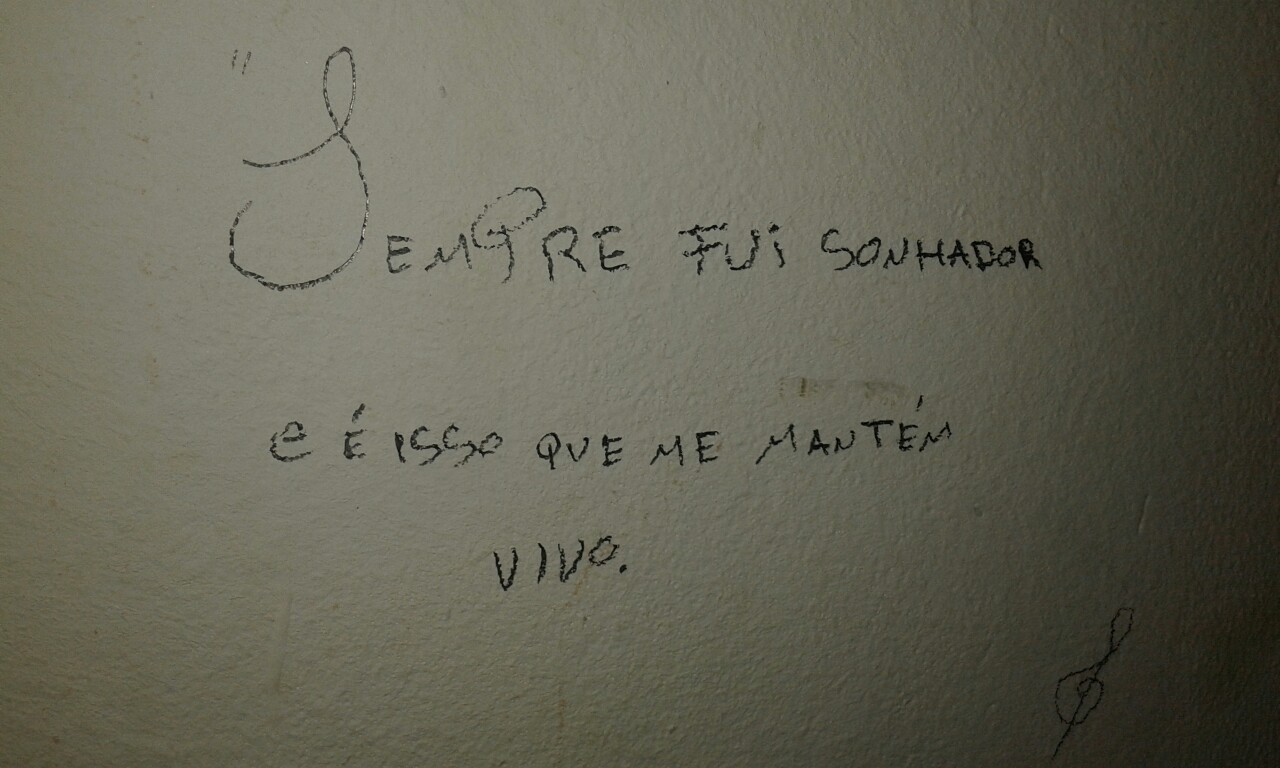 "SEMPRE FUi SONHADOR
e É ISSO QUE ME MANTÉM
VIVO.